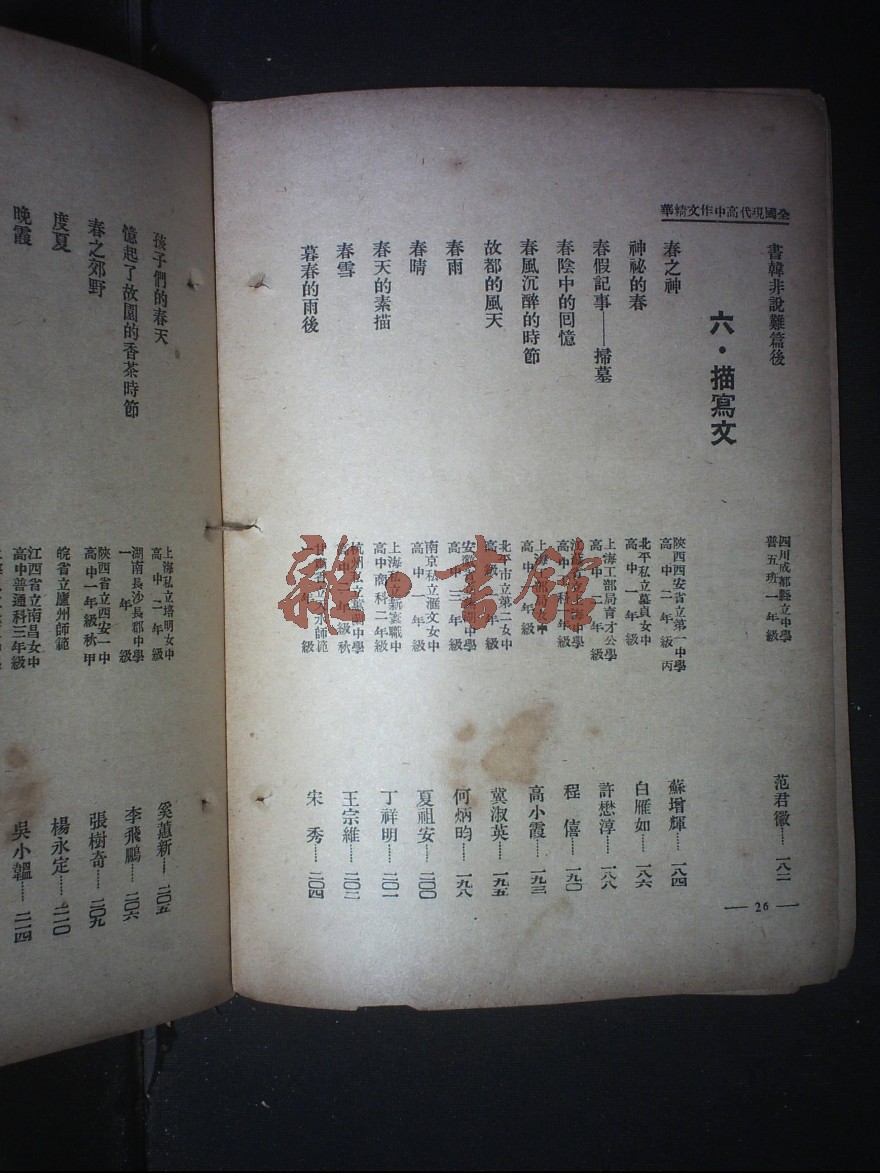 全國現代高中作文精華
書韓非說難篇後
四川成都縣立中學
普五班一年級
范君徽……一八二
六・描寫文
春之神
陝西西安省立第一中學
高中二年級丙
蘇增輝……一八四
神祕的春
北平私立慕貞女中
高中一年級
白雁如……一八六
春假記事——掃墓
上海工部局育才公學
高中二年級
許懋淳……一八八
春陰中的回憶
高中科一年級
程僖……一九〇
春風沉醉的時節
上海
高中
年級
高小霞……一九三
故都的風天
北平市立第二女中
高級一年級
冀淑英……一九五
春雨
安徽
中學
高中三年級
何炳昀……一九八
春晴
南京私立滙文女中
高中一年級
夏祖安……二〇〇
春天的素描
上海私立新寰職中
高中商科二年級
丁祥明……二〇一
春雪
杭州私立蕙蘭中學
高中一年級秋
王宗維……二〇二
暮春的雨後
甘肅省立天水師範
年級
宋秀……二〇四
— 26 —
雜・書館
孩子們的春天
上海私立培明女中
高中二年級
奚蕙新……二〇五
憶起了故園的香茶時節
湖南長沙長郡中學
一年級
李飛鵬……二〇六
春之郊野
陝西省立西安一中
高中一年級秋甲
張樹奇……二〇九
度夏
皖省立廬州師範
楊永定……二一〇
晚霞
江西省立南昌女中
高中普通科三年級
吳小韞……二一四